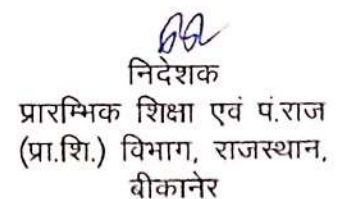 निदेशक
प्रारम्भिक शिक्षा एवं पं.राज
(प्रा.शि.) विभाग, राजस्थान,
बीकानेर